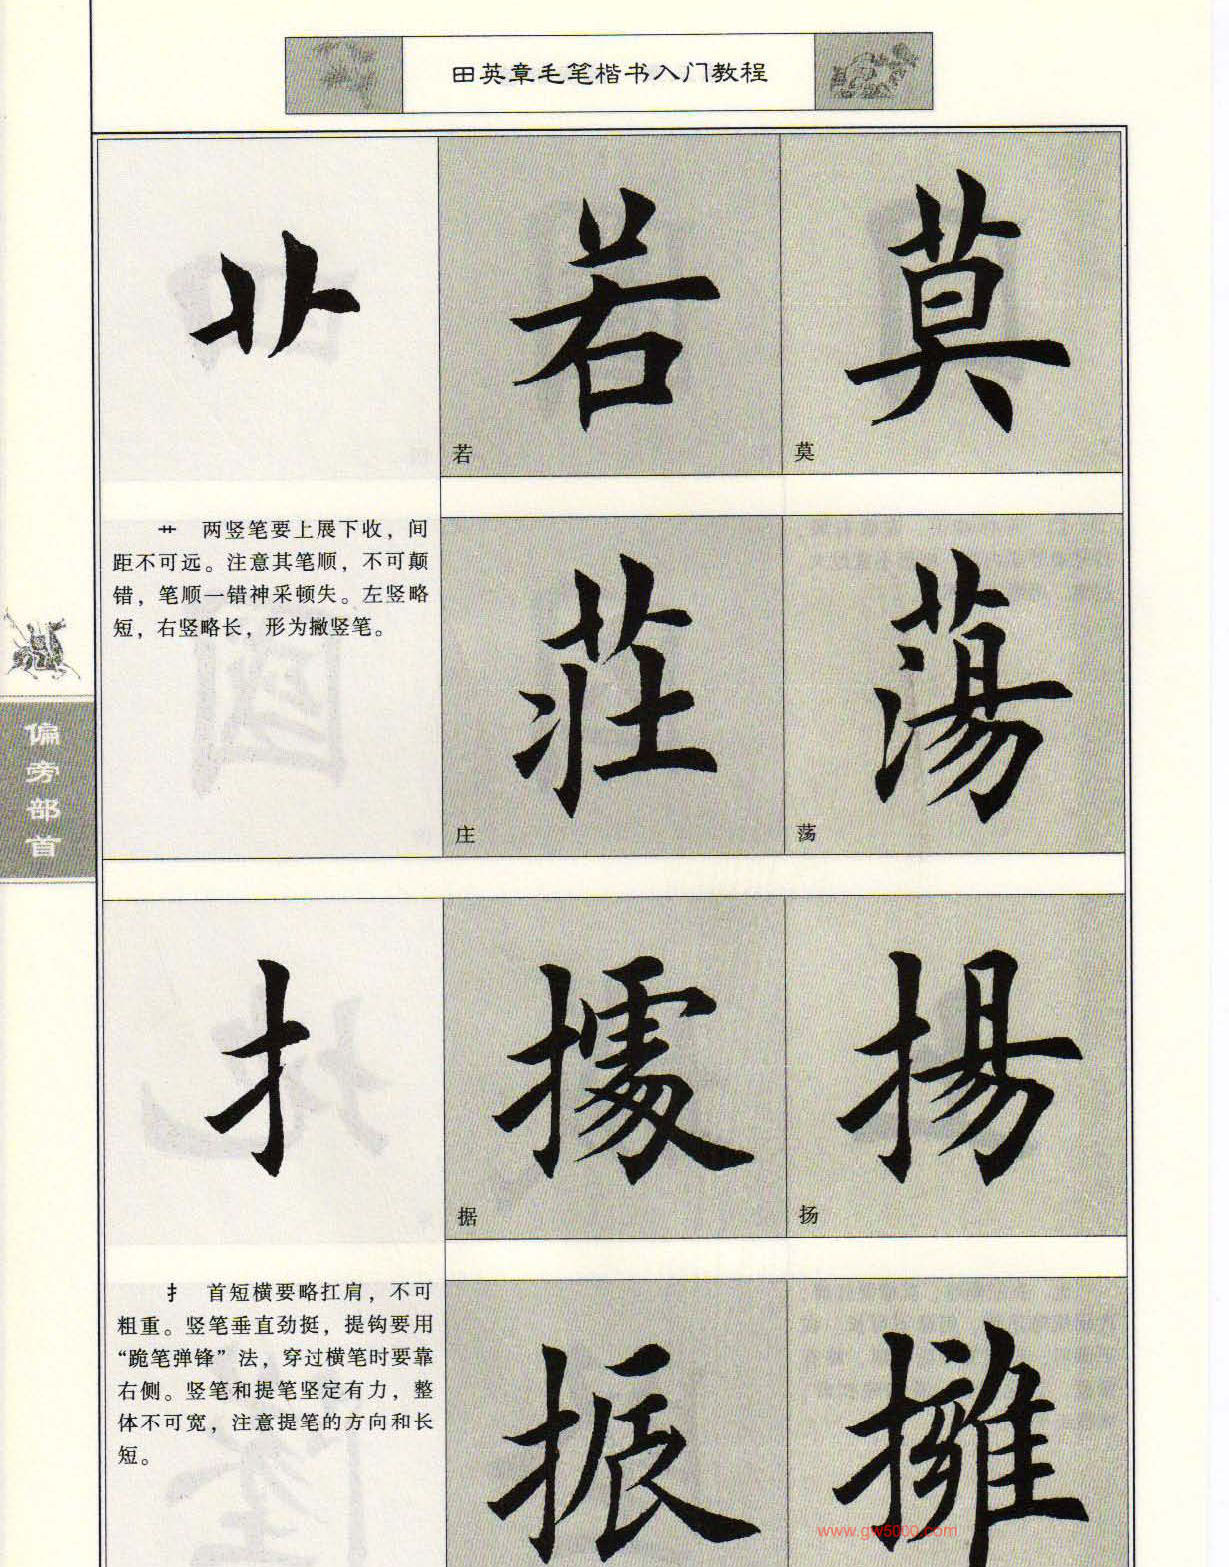 田英章毛笔楷书入门教程
艹
若
莫
若
莫
艹 两竖笔要上展下收，间
距不可远。注意其笔顺，不可颠
错，笔顺一错神采顿失。左竖略
短，右竖略长，形为撇竖笔。
莊
蕩
庄
荡
偏旁部首
扌
據
揚
据
扬
扌 首短横要略扛肩，不可
粗重。竖笔垂直劲挺，提钩要用
“跪笔弹锋”法，穿过横笔时要靠
右侧。竖笔和提笔坚定有力，整
体不可宽，注意提笔的方向和长
短。
振
擁
www.gw5000.com